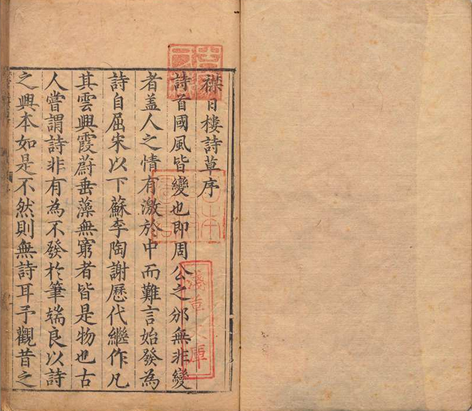 禊日樓詩草序
詩首國風皆變也即周公之邠無非變
者盖人之情有激於中而難言始發為
詩自屈宋以下蘇李陶謝歷代繼作凡
其雲興霞蔚垂藻無窮者皆是物也古
人嘗謂詩非有為不發於筆端良以詩
之興本如是不然則無詩耳予觀昔之